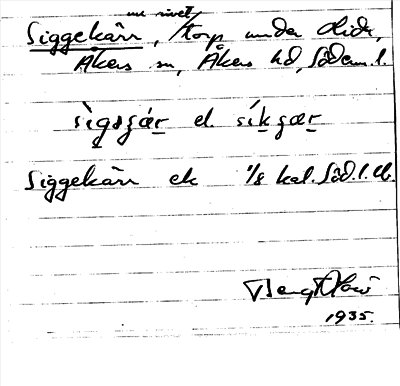 nu rivet
Siggekärr, torp under Lida,
Åkers sn, Åkers hd, Södm. l.
sìgsɟæ̀r el. sìkɟær
Siggekärr ek 1/8 kal. Söd. l. Eb.
Bengt
1935.